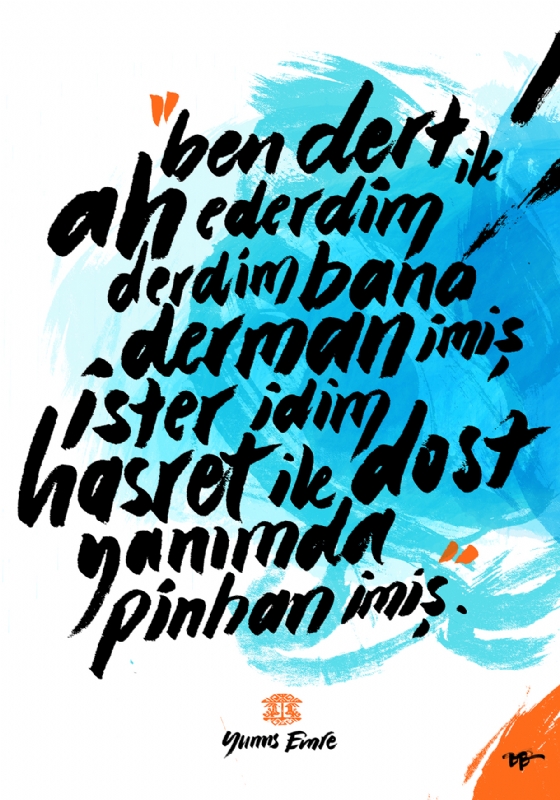 "ben dert ile
ah ederdim
derdim bana
derman imiş
ister idim
hasret ile dost
yanımda
pinhan imiş."
Yunus Emre